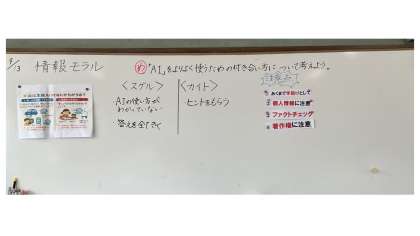 9/3 情報モラル
め「AI」をよりよく使うための付き合い方について考えよう。
<スグル>
AIの使い方が
わかっていない
答えを全てきく
<カイト>
ヒントをもらう
注意点
あくまで手助けとして
個人情報に注意
ファクトチェック
著作権に注意